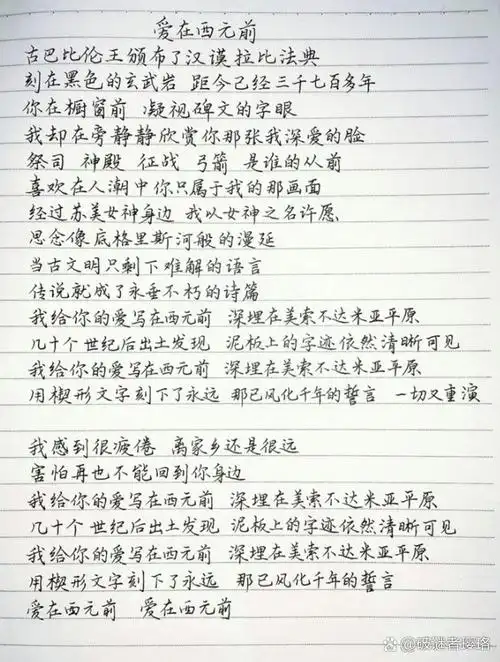 爱在西元前
古巴比伦王颁布了汉谟拉比法典
刻在黑色的玄武岩 距今已经三千七百多年
你在橱窗前 凝视碑文的字眼
我却在旁静静欣赏你那张我深爱的脸
祭司 神殿 征战 弓箭 是谁的从前
喜欢在人潮中你只属于我的那画面
经过苏美女神身边 我以女神之名许愿
思念像底格里斯河般的漫延
当古文明只剩下难解的语言
传说就成了永垂不朽的诗篇
我给你的爱写在西元前 深埋在美索不达米亚平原
几十个世纪后出土发现 泥板上的字迹依然清晰可见
我给你的爱写在西元前 深埋在美索不达米亚平原
用楔形文字刻下了永远 那已风化千年的誓言 一切又重演
我感到很疲倦 离家乡还是很远
害怕再也不能回到你身边
我给你的爱写在西元前 深埋在美索不达米亚平原
几十个世纪后出土发现 泥板上的字迹依然清晰可见
我给你的爱写在西元前 深埋在美索不达米亚平原
用楔形文字刻下了永远 那已风化千年的誓言
爱在西元前 爱在西元前
@破谜者璎珞